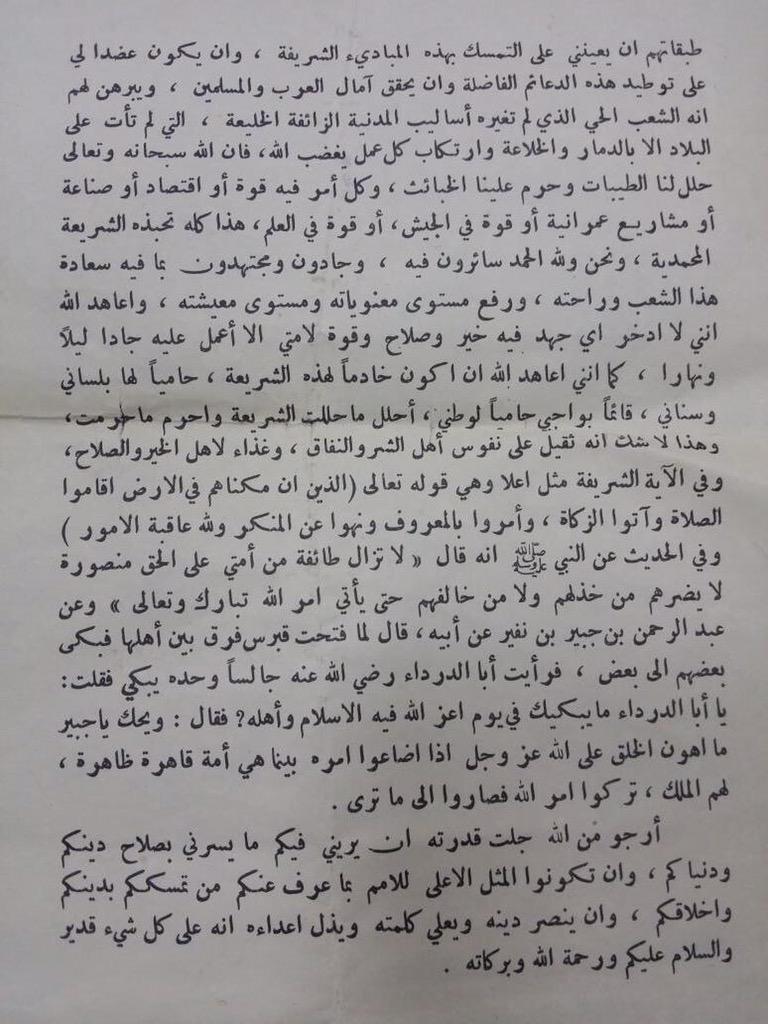 طبقاتهم ان يعينني على التمسك بهذه المباديء الشريفة ، وان يكون عضدا لي
على توطيد هذه الدعائم الفاضلة وان يحقق آمال العرب والمسلمين ، ويبرهن لهم
انه الشعب الحي الذي لم تغيره أساليب المدنية الزائفة الخليعة ، التي لم تأت على
البلاد الا بالدمار والخلاعة وارتكاب كل عمل يغضب الله، فان الله سبحانه وتعالى
حلل لنا الطيبات وحرم علينا الخبائث ، وكل أمر فيه قوة أو اقتصاد أو صناعة
أو مشاريع عمرانية أو قوة في الجيش، أو قوة في العلم، هذا كله تحبذه الشريعة
المحمدية ، ونحن ولله الحمد سائرون فيه ، وجادون ومجتهدون بما فيه سعادة
هذا الشعب وراحته ، ورفع مستوى معنوياته ومستوى معيشته ، واعاهد الله
انني لا ادخر اي جهد فيه خير وصلاح وقوة لامتي الا أعمل عليه جادا ليلاً
ونهارا ، كما انني اعاهد الله ان اكون خادماً لهذه الشريعة ، حامياً لها بلساني
وسناني ، قائماً بواجبي حامياً لوطني ، أحلل ما حللت الشريعة واحرم ما حرمت،
وهذا لا شك انه ثقيل على نفوس أهل الشر والنفاق ، وغذاء لاهل الخير والصلاح،
وفي الآية الشريفة مثل اعلا وهي قوله تعالى (الذين ان مكناهم في الارض اقاموا
الصلاة وآتوا الزكاة ، وأمروا بالمعروف ونهوا عن المنكر ولله عاقبة الامور )
وفي الحديث عن النبي ﷺ انه قال « لا تزال طائفة من أمتي على الحق منصورة
لا يضرهم من خذلهم ولا من خالفهم حتى يأتي امر الله تبارك وتعالى » وعن
عبد الرحمن بن جبير بن نفير عن أبيه ، قال لما فتحت قبرس فرق بين أهلها فبكى
بعضهم الى بعض ، فرأيت أبا الدرداء رضي الله عنه جالساً وحده يبكي فقلت:
يا أبا الدرداء ما يبكيك في يوم اعز الله فيه الاسلام وأهله? فقال : ويحك يا جبير
ما اهون الخلق على الله عز وجل اذا اضاعوا امره بينما هي أمة قاهرة ظاهرة ،
لهم الملك ، تركوا امر الله فصاروا الى ما ترى .
أرجو من الله جلت قدرته ان يريني فيكم ما يسرني بصلاح دينكم
ودنياكم ، وان تكونوا المثل الاعلى للامم بما عرف عنكم من تمسككم بدينكم
واخلاقكم ، وان ينصر دينه ويعلي كلمته ويذل اعداءه انه على كل شيء قدير
والسلام عليكم ورحمة الله وبركاته .